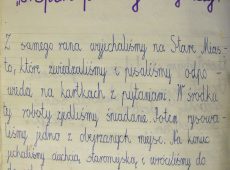 Z samego rana wyjechaliśmy na Stare Mias-
to, które zwiedzaliśmy i pisaliśmy odpo-
wiedzi na kartkach z pytaniami. W środku
tej roboty zjedliśmy śniadanie. Potem rysowa-
liśmy jedno z obejrzanych miejsc. Na koniec
jechaliśmy staromyską, i wróciliśmy do